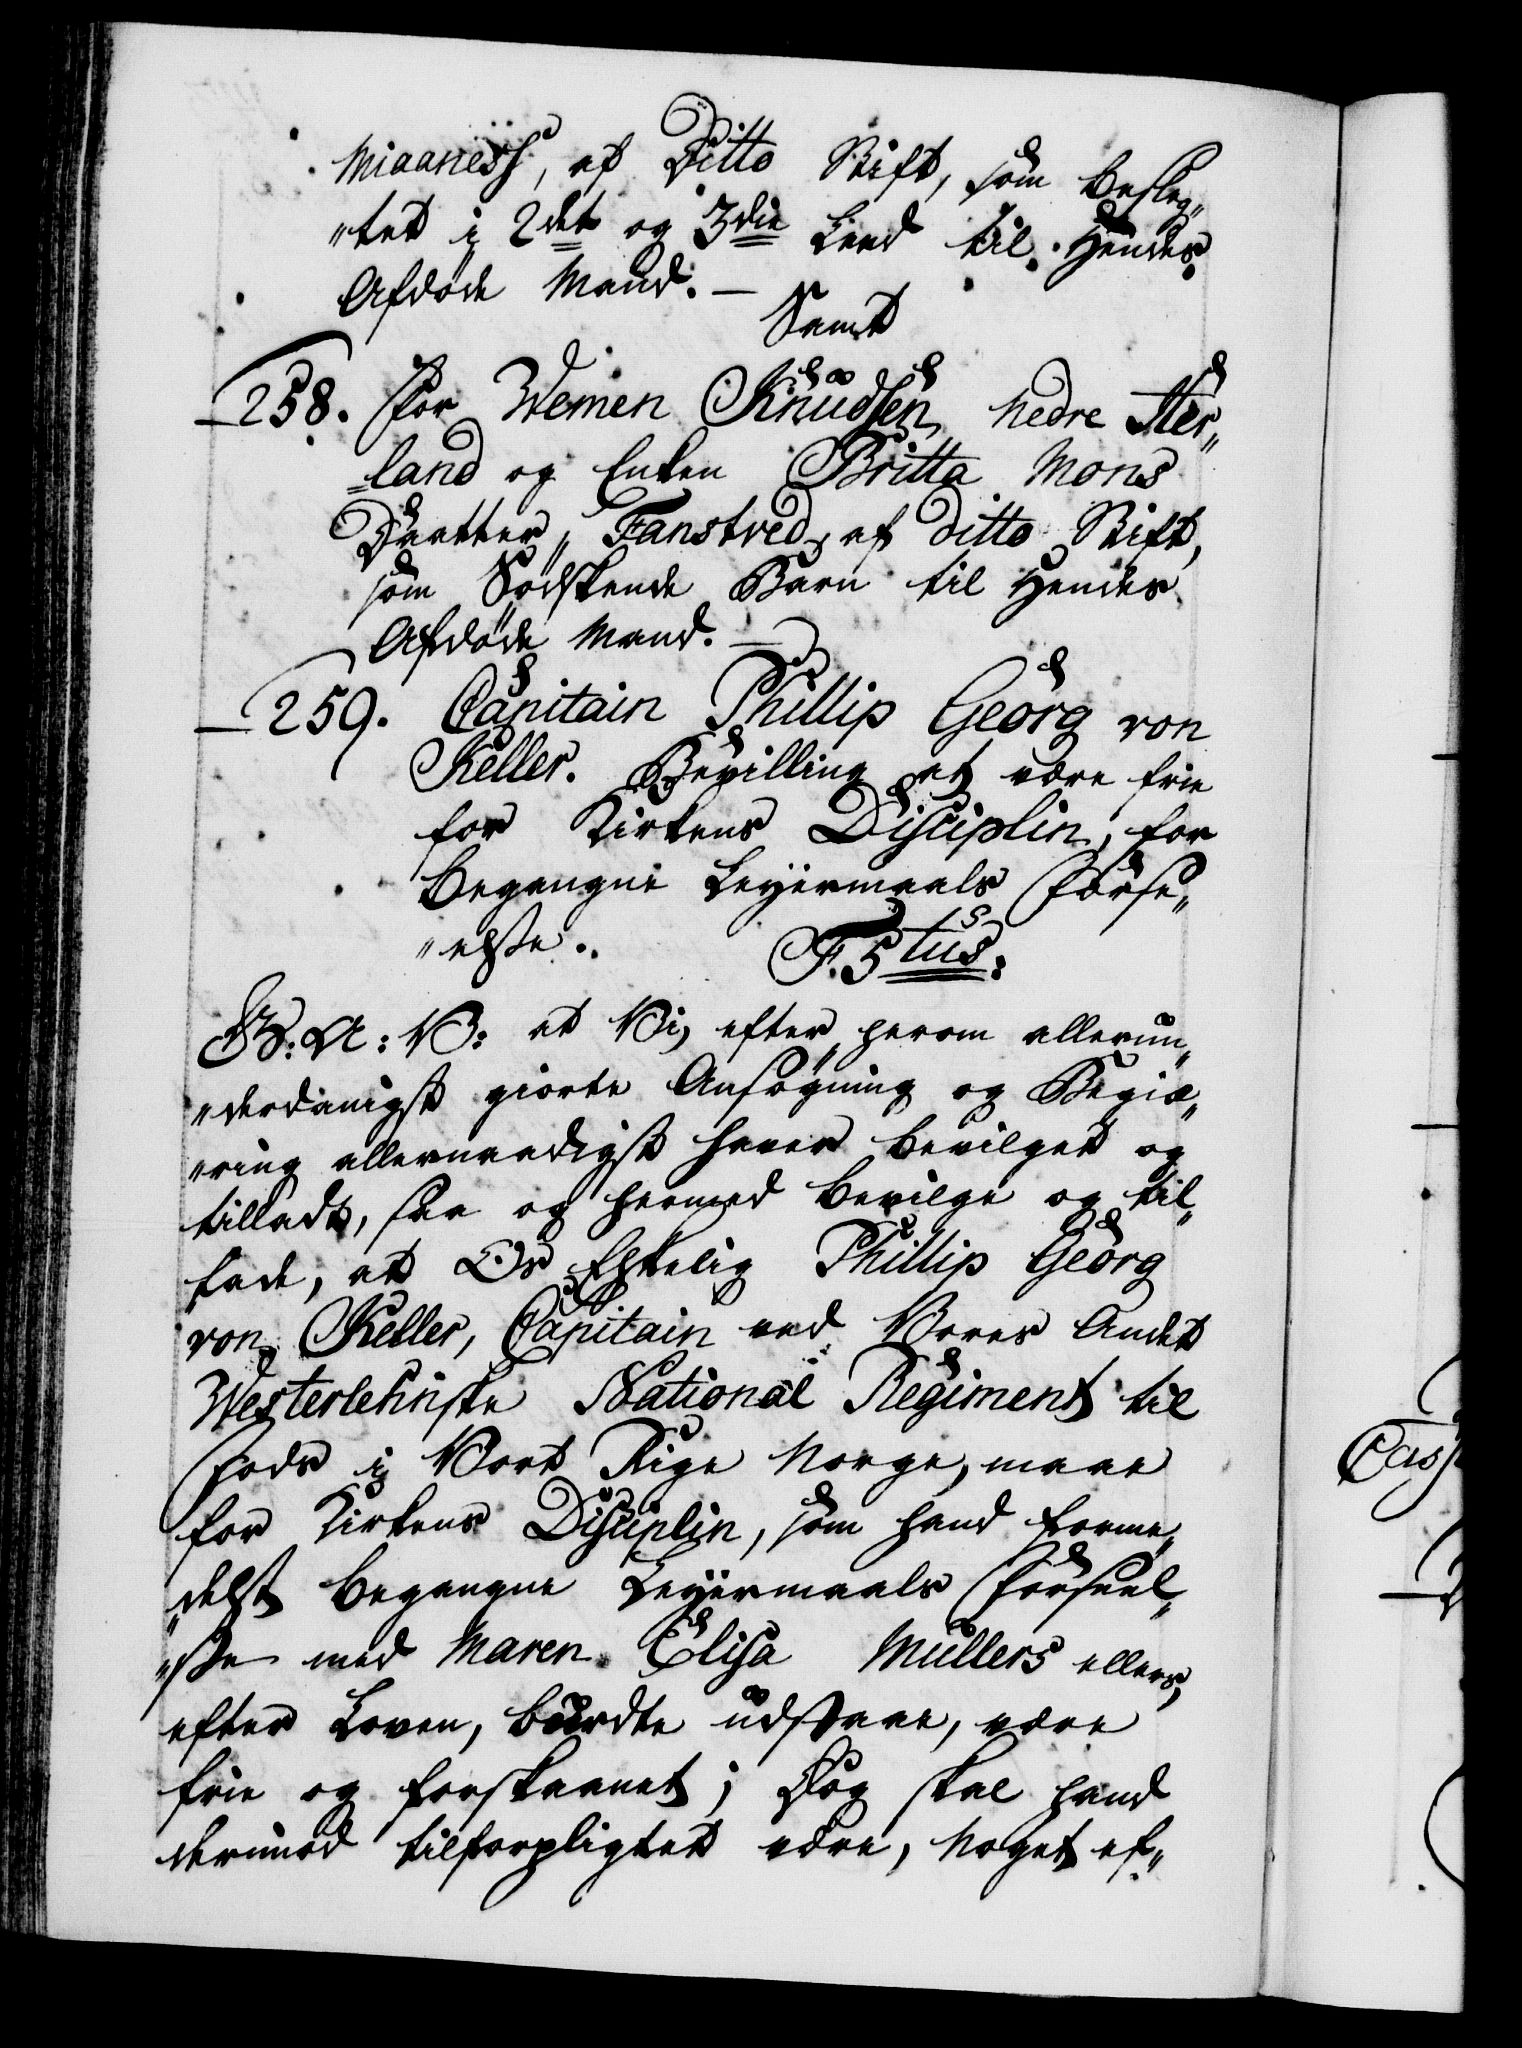 Miaaness, af Ditto Stift, som besleg„
„tet i 2det og 3die Leed til Hendes
Afdøde Mand. —
Samt
258. For Wemen Knudsen nedre Tter„
„land og Enken Britta Mons
Daatter, Fanstved, af ditto Stift,
som Sødskende Barn til Hendes
Afdøde Mand. —
259. Capitain Phillip Georg von
Keller. Bevilling at være frie
for Kirkens Disciplin, for
begangne Leyermaals Forse„
„else. F. 5tus:
G: A: V: at Vi, efter herom allerun„
„derdanigst giorte Ansøgning og Begiæ„
„ring allernaadigst haver bevilget og
tilladt, saa og hermed bevilge og til„
lade, at Os Elskelig Phillip Georg
von Keller, Capitain ved Vores Andet
Westerlehnske National Regiment til
Fods i Vort Rige Norge, maae
for Kirkens Disciplin, som hand forme„
„delst begangne Leyermaals Forseel„
„se med Maren Elisa Müllers ellers,
efter Loven, burdte udstaae, være
frie og forskaanet; Dog skal hand
derimod tilforpligtet være, Noget ef„